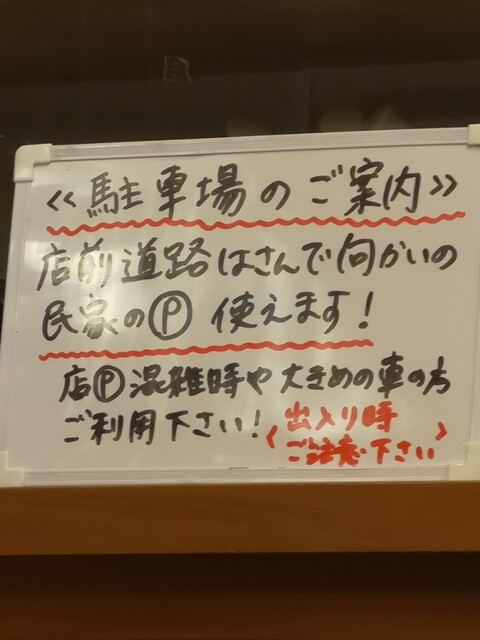 ≪駐車場のご案内≫
店前道路はさんで向かいの
民家のⓅ 使えます！
店Ⓟ混雑時や大きめの車の方
ご利用下さい！
〈出入り時
ご注意下さい〉